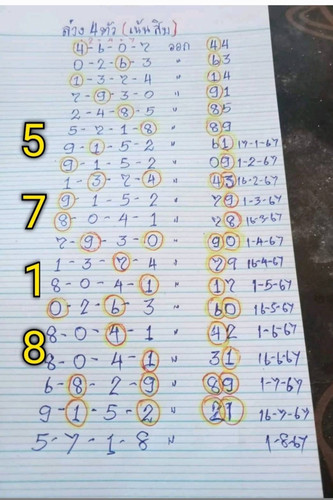 ล่าง 4 ตัว (เน้นสิบ)
4-6-0-7 ออก 44
0-2-6-3 " 63
1-3-7-4 " 14
7-9-3-0 " 91
2-4-8-5 " 85
5-7-1-8 " 89
5
9-1-5-2 " 61 17-1-67
9-1-5-2 " 09 1-2-67
1-3-7-4 " 43 16-2-67
7
9-1-5-2 " 79 1-3-67
8-0-4-1 " 78 16-3-67
7-9-3-0 " 90 1-4-67
1-3-7-4 " 79 16-4-67
1
8-0-4-1 " 17 1-5-67
0-2-6-3 " 60 16-5-67
8-0-4-1 " 42 1-6-67
8
8-0-4-1 " 31 16-6-67
6-8-2-9 " 89 1-7-67
9-1-5-2 " 21 16-7-67
5-7-1-8 " 1-8-67